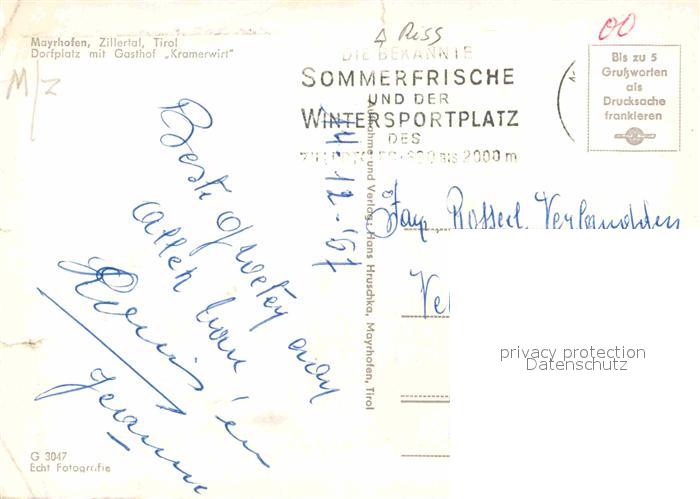 Mayrhofen, Zillertal, Tirol
Dorfplatz mit Gasthof „Kramerwirt"
M/Z
Riss
00
DIE BEKANNTE
SOMMERFRISCHE
UND DER
WINTERSPORTPLATZ
DES
BIS 2000 m
Bis zu 5
Grußworten
als
Drucksache
frankieren
Beste groeten aan
allen van
Louis en
Jeanne
12-'67
Aufnahme und Verlag: Hans Hruschka, Mayrhofen, Tirol
Fam.
Ve
privacy protection
Datenschutz
G 3047
Echt Fotografie